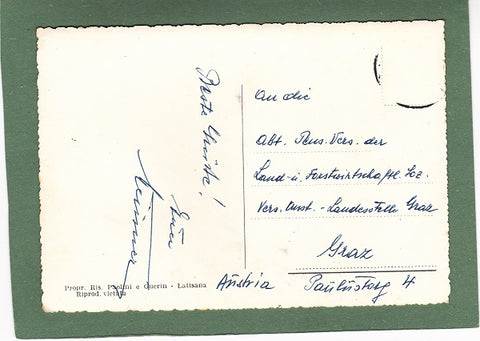 Beste Grüsse!
Euer
An die
Abt. Pens. Vers. der
Land- u. Forstwirtschaftl. Soz.
Vers. Anst. - Landesstelle Graz
Graz
Austria Paulustorg 4
Propr. Ris. Paolini e Guerin - Latisana
Riprod. vietata